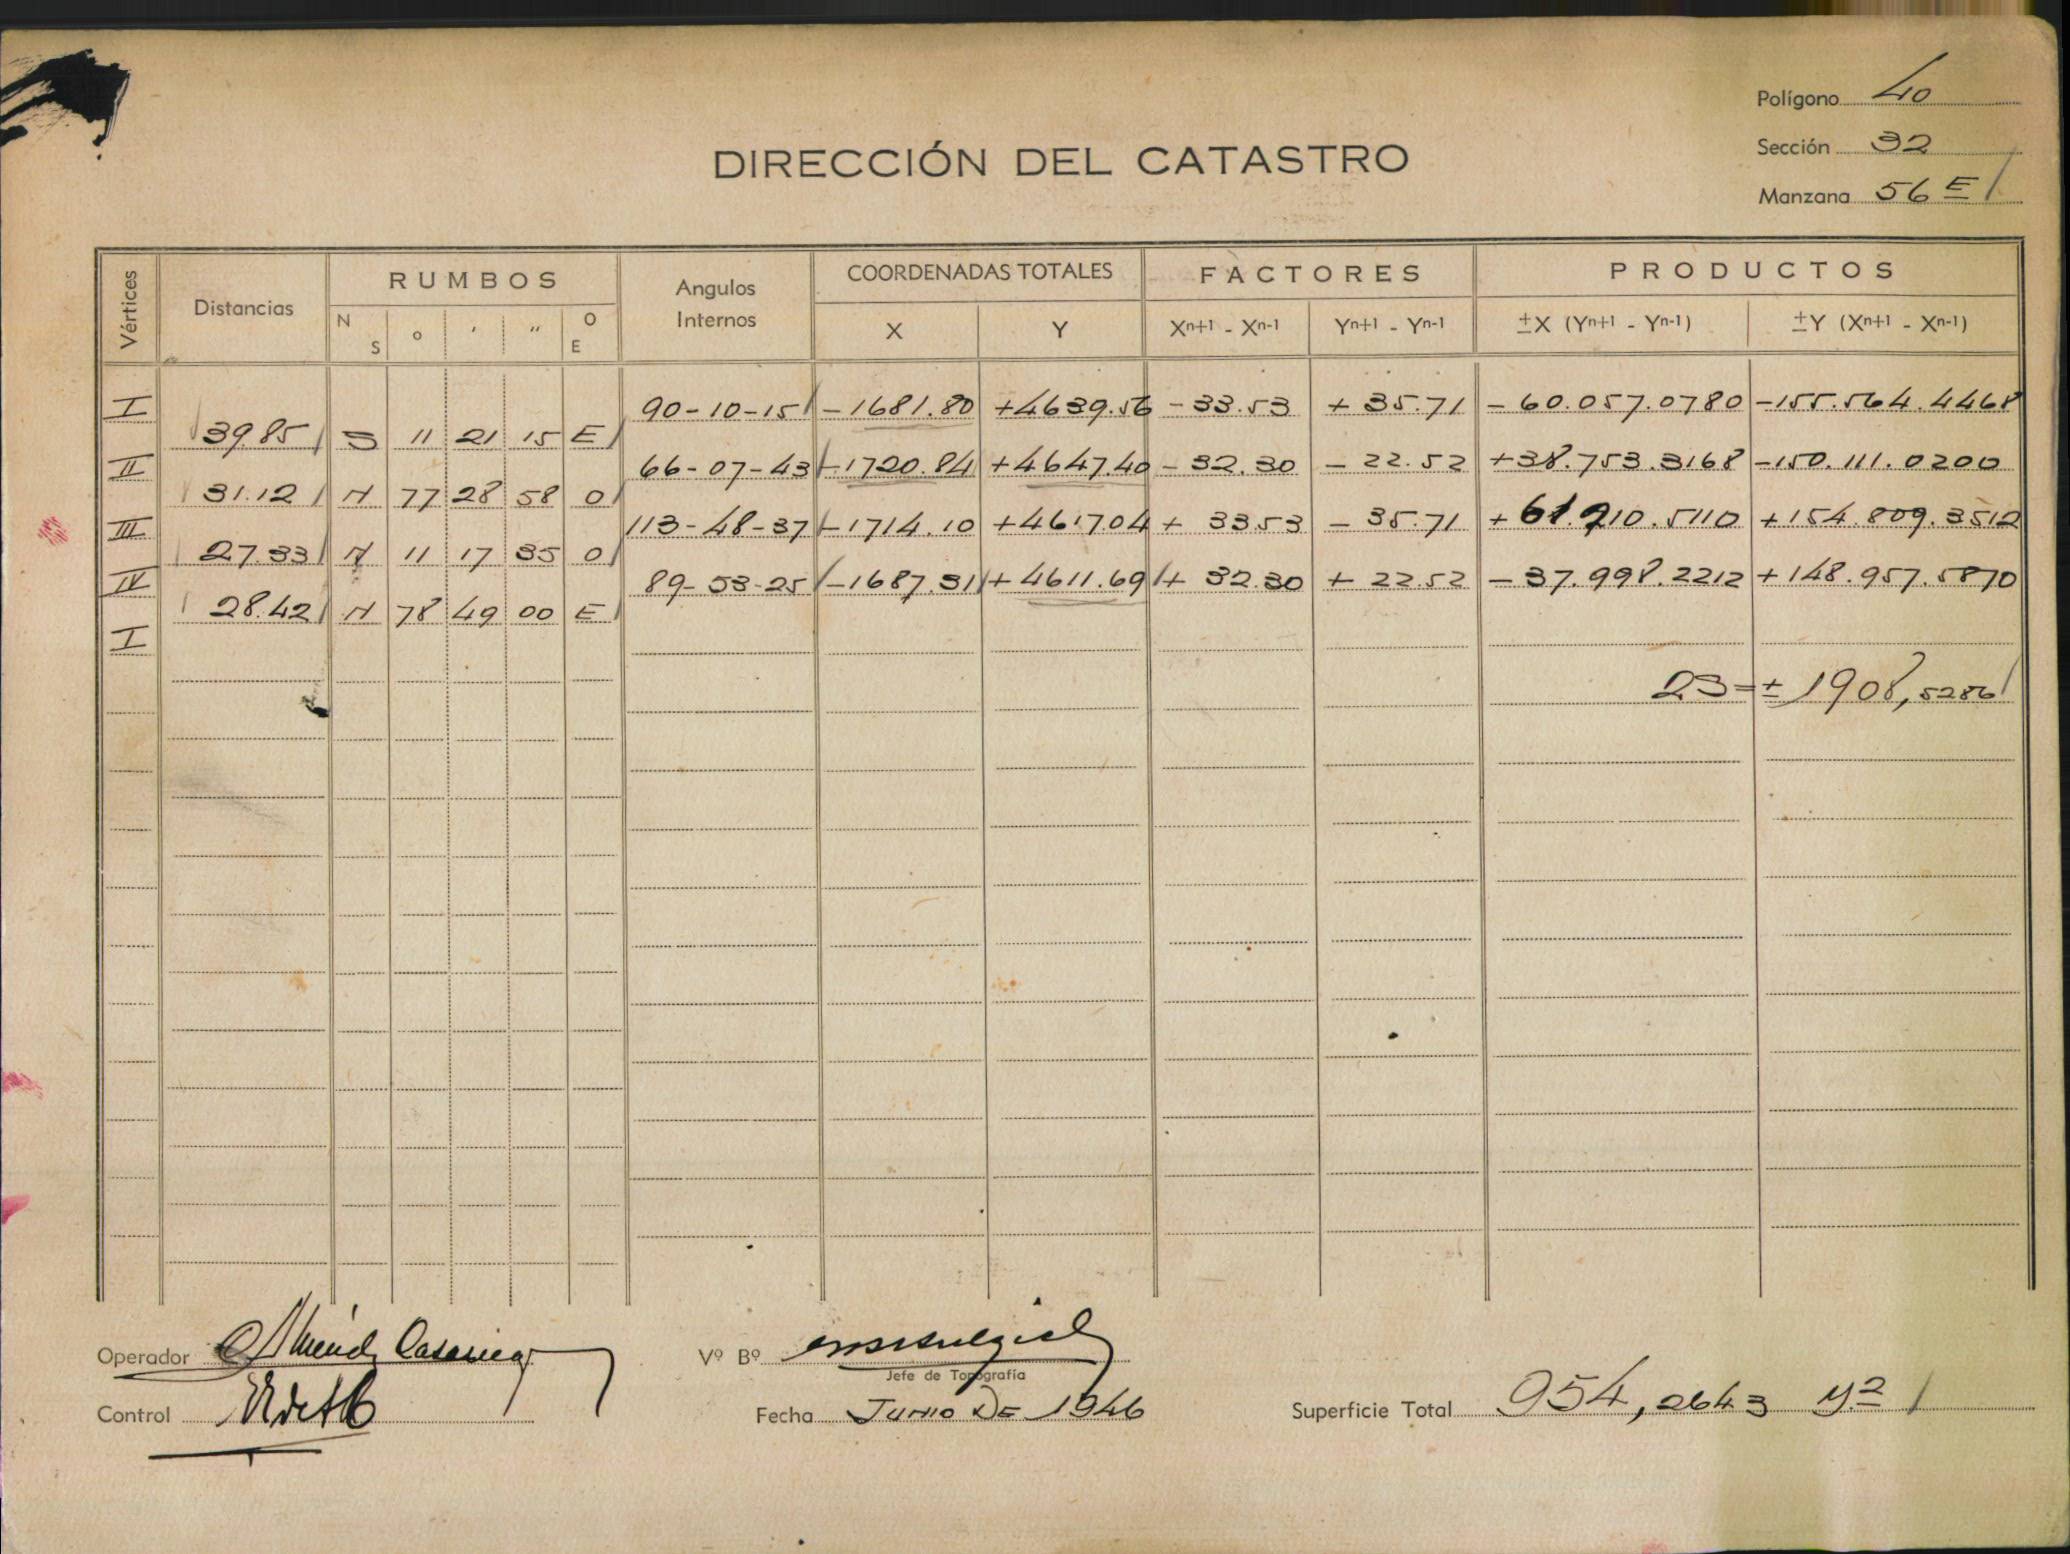 Polígono 40
DIRECCIÓN DEL CATASTRO
Sección 32
Manzana 56 E
Vértices Distancias RUMBOS Angulos Internos COORDENADAS TOTALES FACTORES PRODUCTOS
N S o ' " O E X Y Xn+1 - Xn-1 Yn+1 - Yn-1 ±X (Yn+1 - Yn-1) ±Y (Xn+1 - Xn-1)
I 90-10-15 -1681.80 +4639.56 -33.53 +35.71 -60.057.0780 -155.564.4468
39.85 S 11 21 15 E
II 66-07-43 -1720.84 +4647.40 -32.30 -22.52 +38.753.3168 -150.111.0200
31.12 N 77 28 58 O
III 113-48-37 -1714.10 +4617.04 +33.53 -35.71 +61.210.5110 +154.809.3512
27.33 N 11 17 35 O
IV 89-53-25 -1687.31 +4611.69 +32.30 +22.52 -37.998.2212 +148.957.5870
28.42 N 78 49 00 E
I
2S=± 1908,5286
Operador
Vº Bº
Jefe de Topografía
Control
Fecha Junio De 1946
Superficie Total 954,2643 M.2